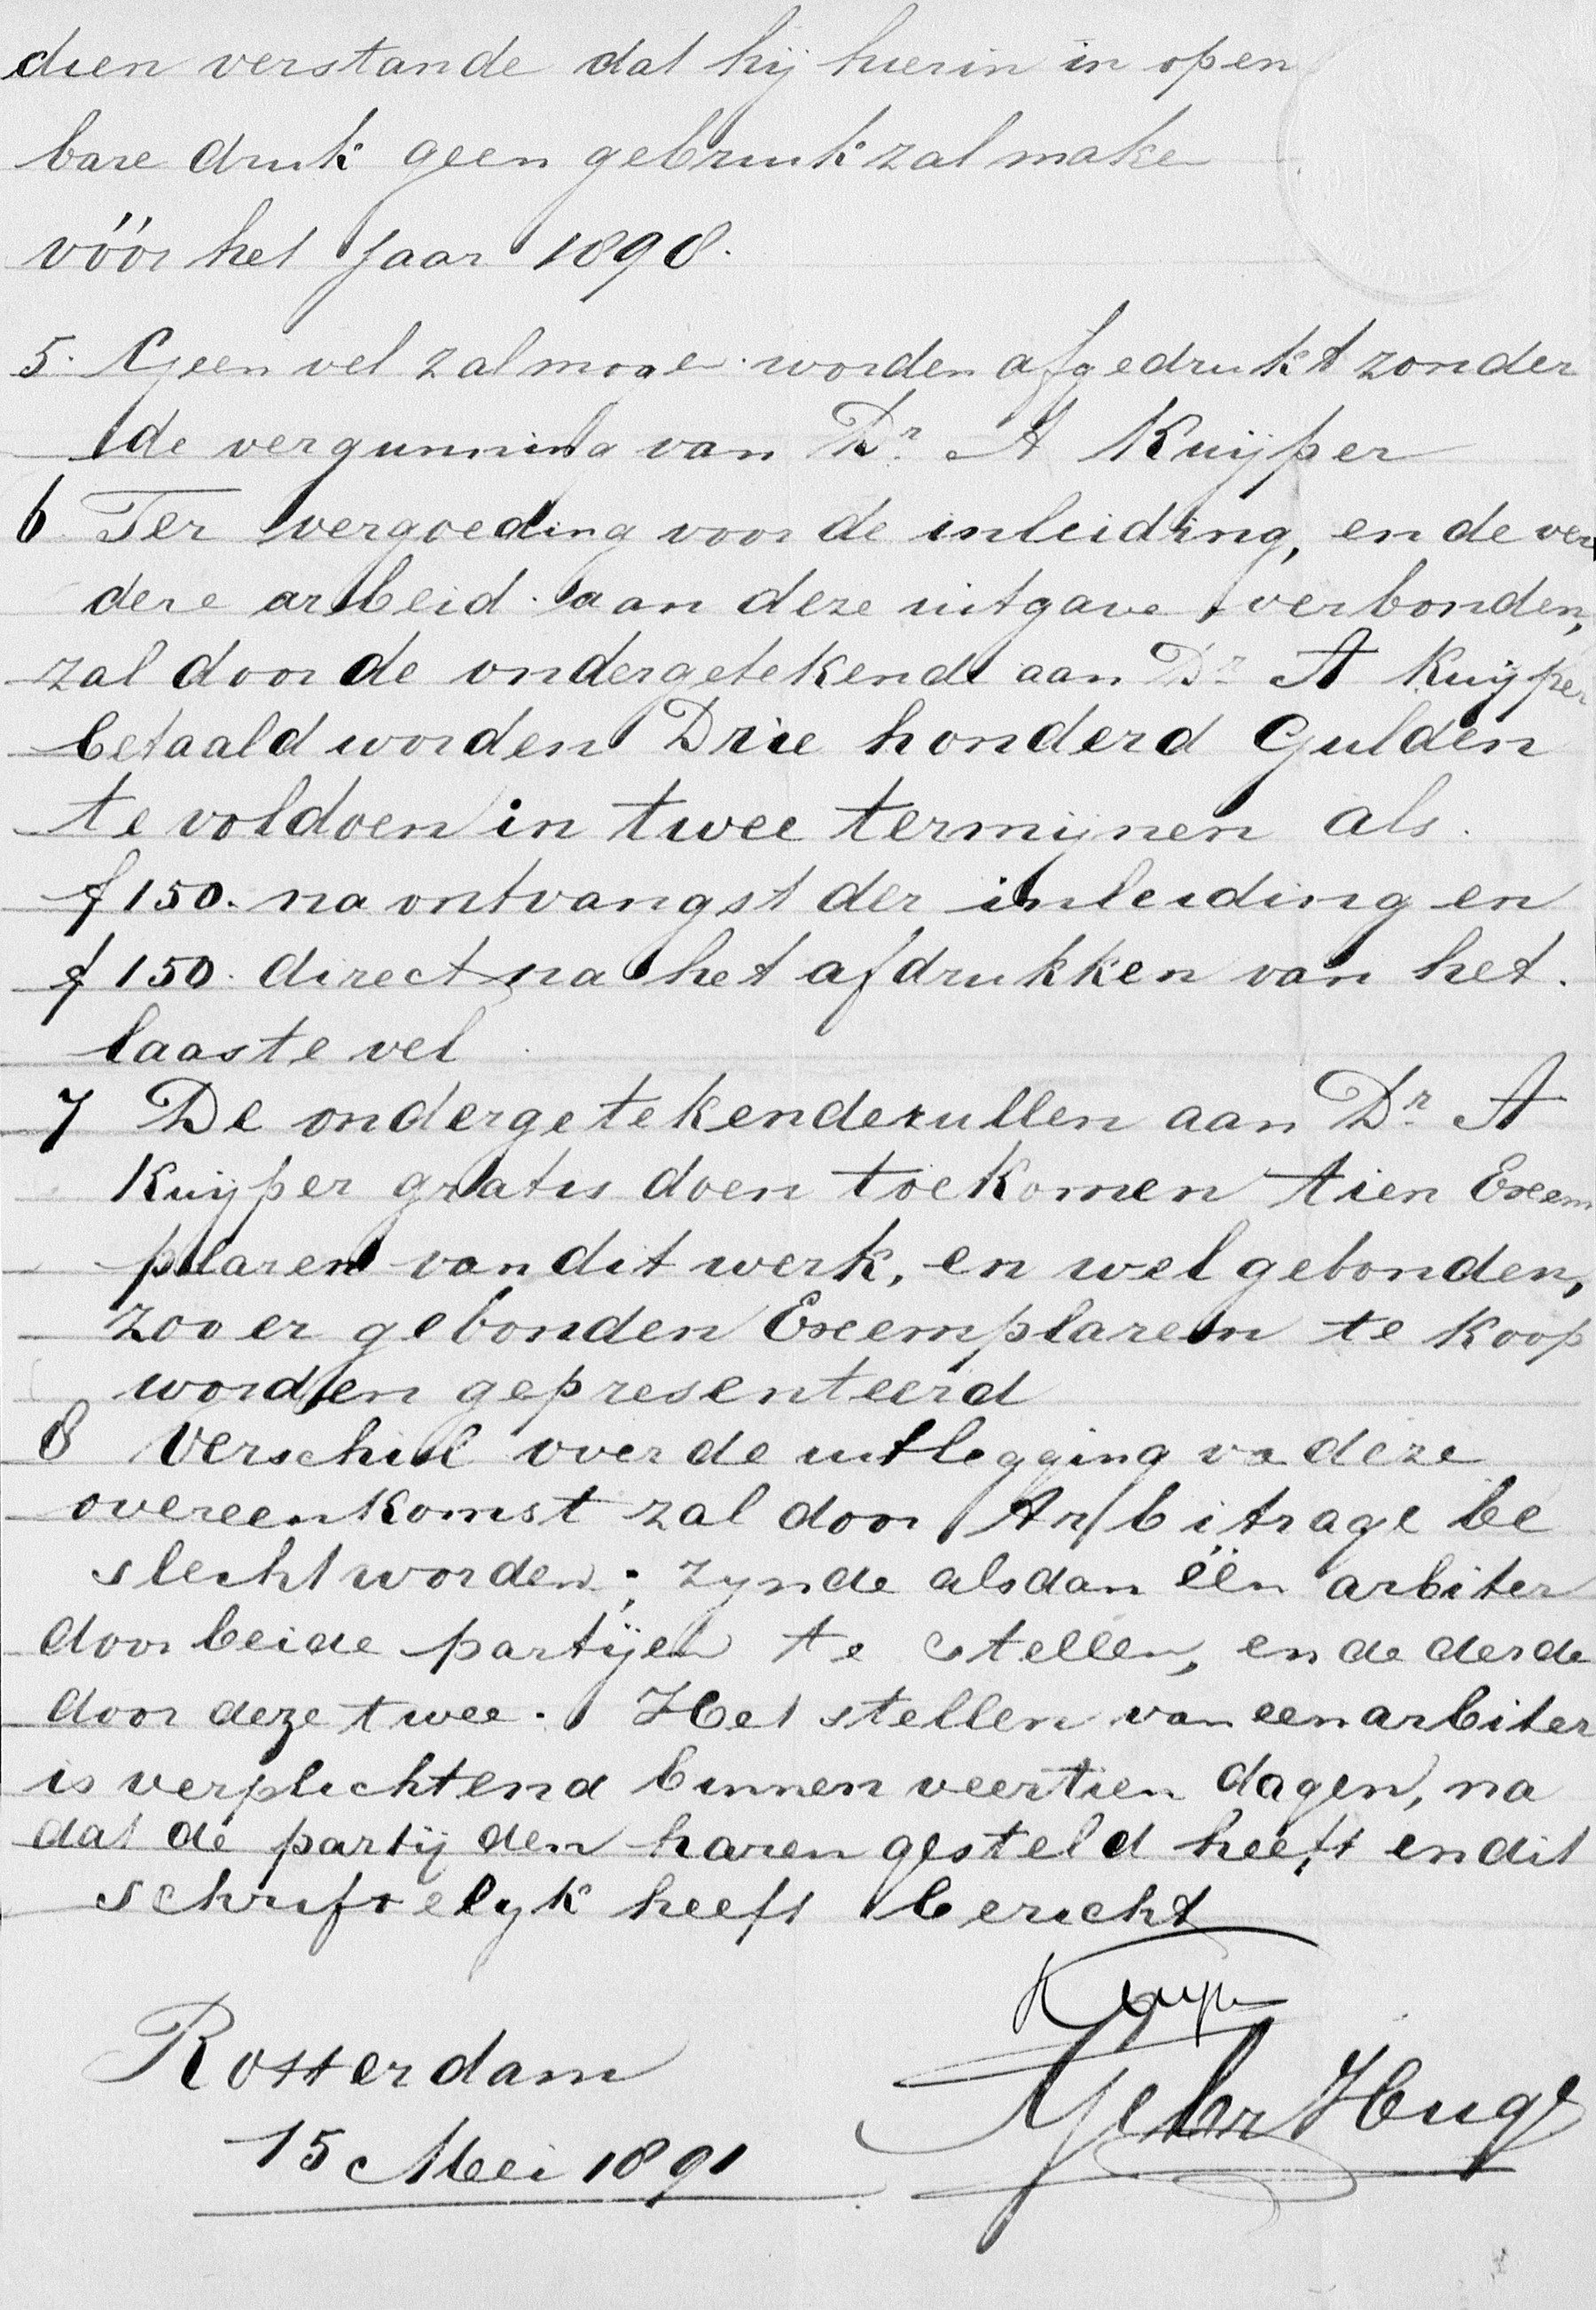 dien verstande dat hij hierin in open
bare druk geen gebruik zal make
vóór het Jaar 1898.
5. Geen vel zal moge worden afgedrukt zonder
de vergunning van Dr. A Kuijper
6 Ter vergoeding voor de inleiding, en de ver
dere arbeid aan deze uitgave verbonden,
zal door de ondergetekend aan Dr A Kuijper
betaald worden Drie honderd Gulden
te voldoen in twee termijnen als.
f 150. na ontvangst der inleiding en
f 150. direct na het afdrukken van het.
laaste vel
7 De ondergetekende zullen aan Dr. A
Kuijper gratis doen toekomen tien Exem
plaren van dit werk, en wel gebonden,
zoo er gebonden Exemplaren te koop
worden gepresenteerd
8 Verschil over de uitlegging va deze
overeenkomst zal door Arbitrage be
slecht worden; zynde alsdan één arbiter
door beide partijen te stellen, en de derde
door deze twee. Het stellen van een arbiter
is verplichtend binnen veertien dagen, na
dat de partij den haren gesteld heeft en dit
schriftelyk heeft bericht
Kuyper
Rotterdam
Gebr Huge
15 Mei 1891